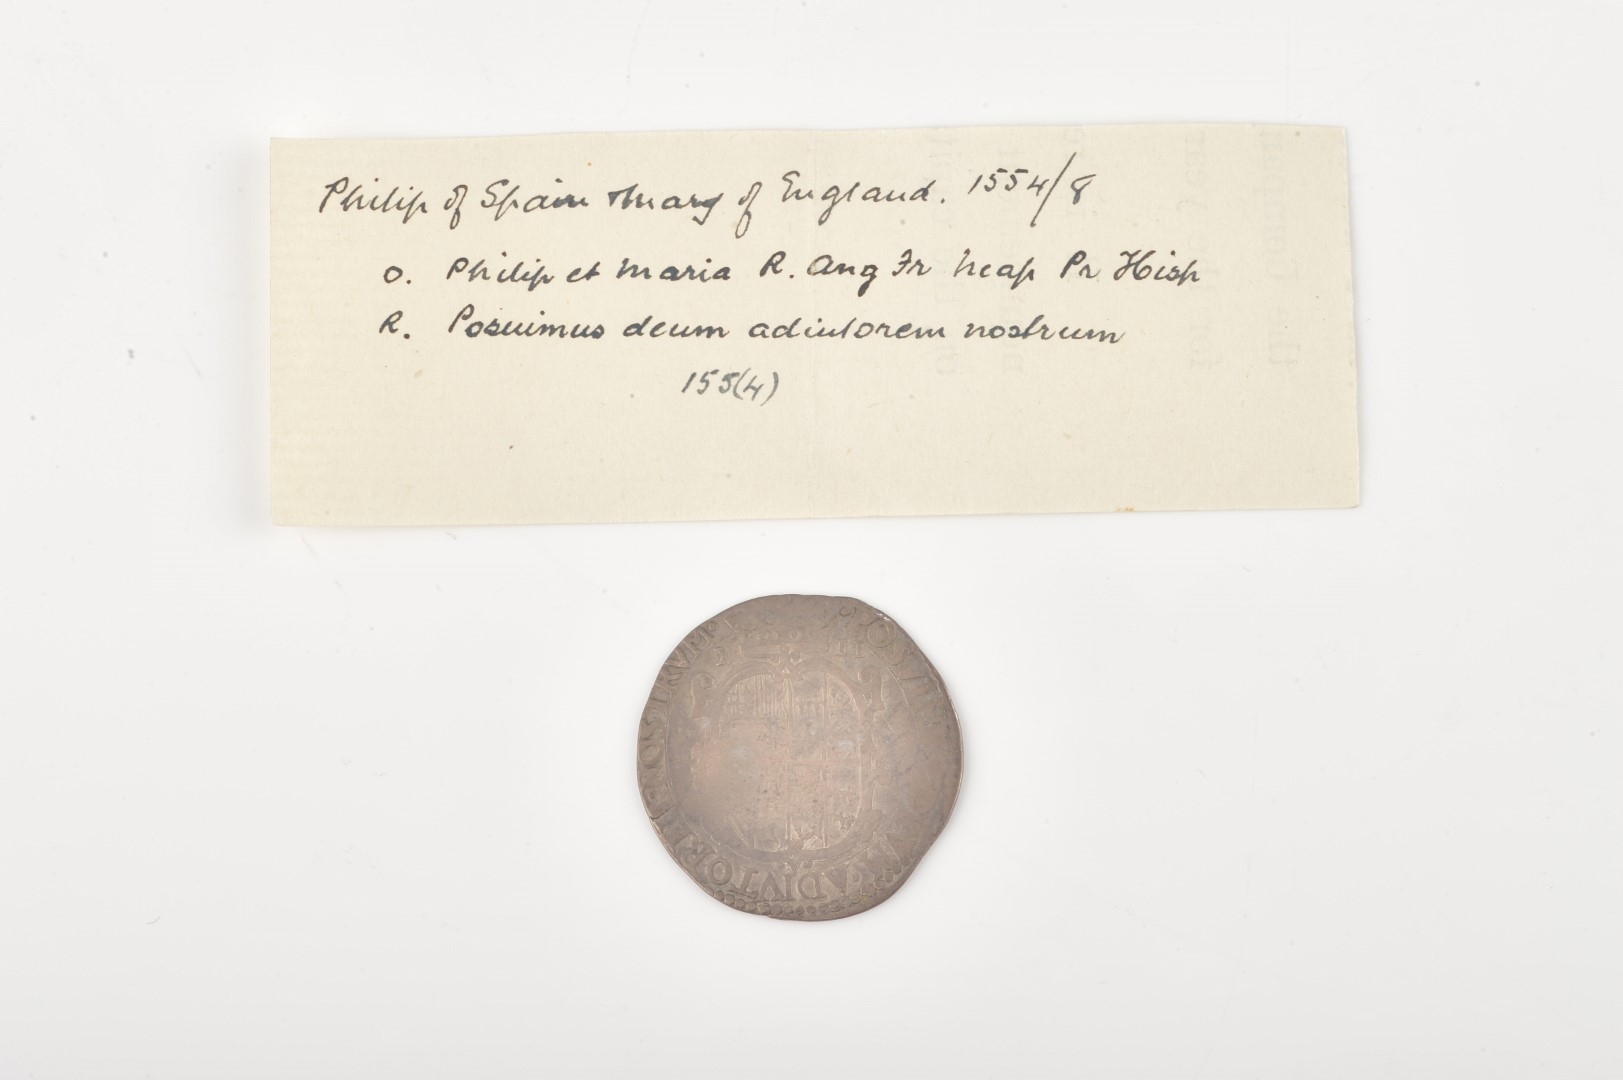 Philip of Spain & Mary of England. 1554/8
O. Philip et Maria R. Ang Fr Neap Pr Hisp
R. Posuimus deum adiutorem nostrum
155(4)
X II
ADIVTORE NOSTRVM